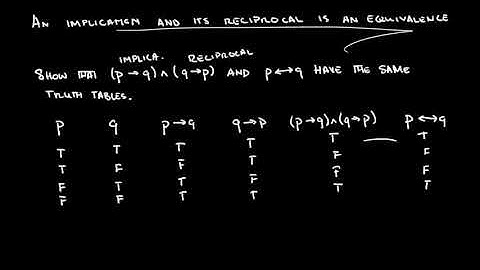 AN IMPLICATION AND ITS RECIPROCAL IS AN EQUIVALENCE
IMPLICA. RECIPROCAL
SHOW THAT (p→q)∧(q→p) AND p↔q HAVE THE SAME
TRUTH TABLES.
p q p→q q→p (p→q)∧(q→p) p↔q
T T T T T T
T F F T F F
F T T F F F
F F T T T T